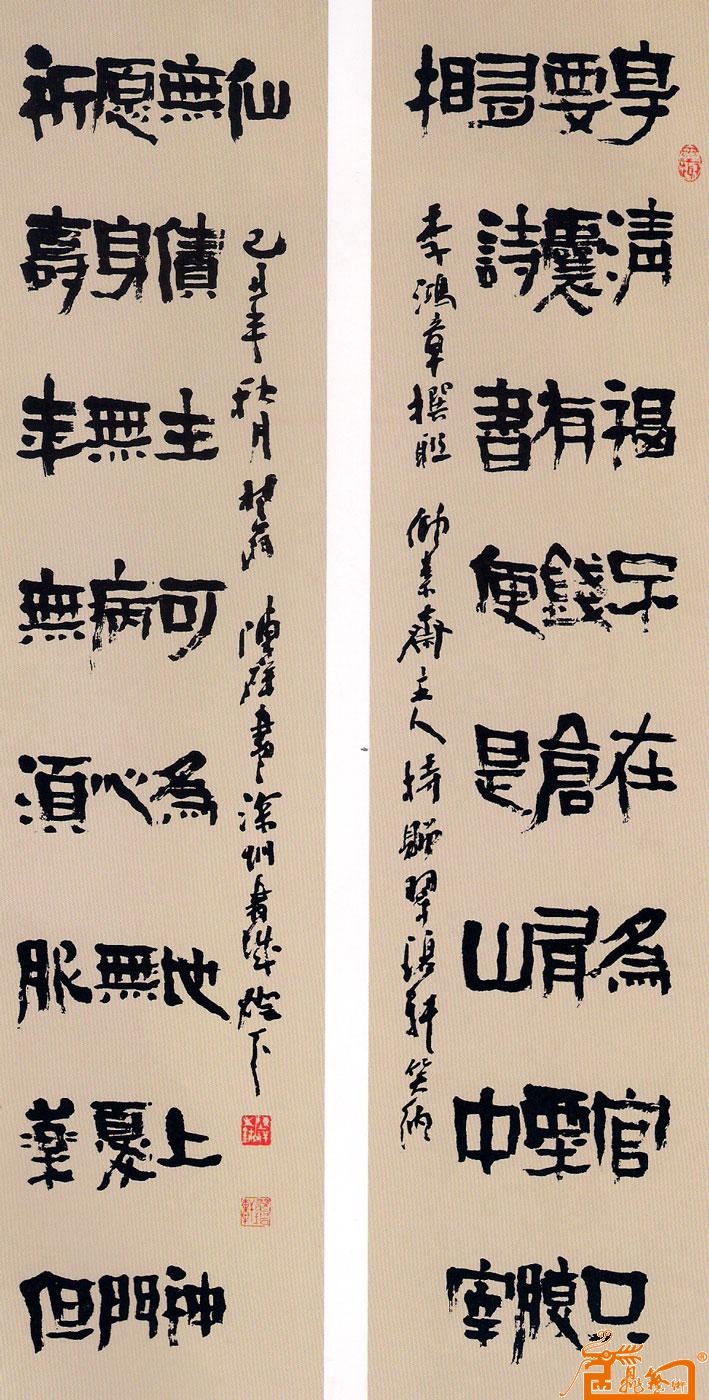 享清福不在為官只
要囊有錢倉有粟腹
有詩書便是山中宰
相
李鴻章撰聯 素齋主人持贈翠軒笑納
祈壽年無須服藥但
願身無病心無憂門
無債主可為地上神
仙
己丑年秋月 陳書深圳書城燈下